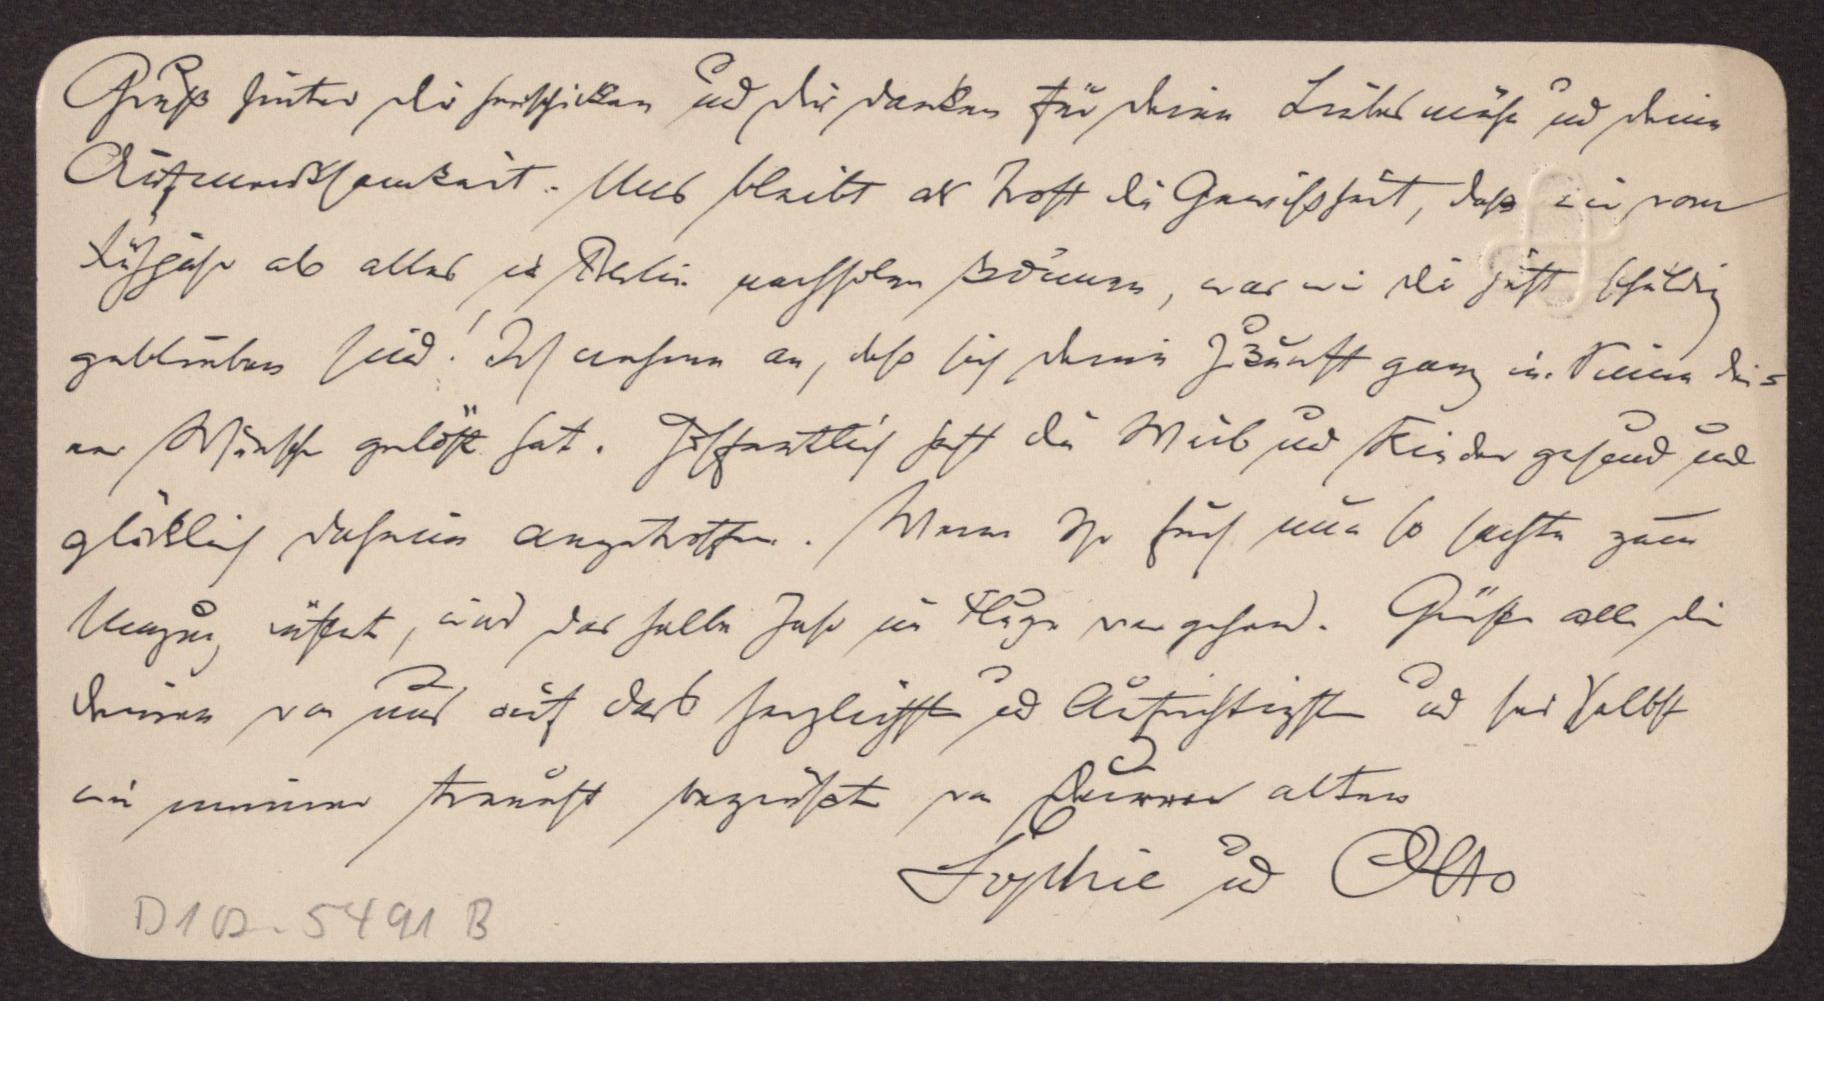 Gruß hinter dir herschicken und dir danken für deine Liebesmühe und deine
Aufmerksamkeit. Uns bleibt als Trost die Gewißheit, daß wir vom
Frühjahr ab alles in Berlin nachholen können, was wir dir jetzt schuldig
geblieben sind! Ich nehme an, daß sich deine Zukunft ganz im Sinne dei=
ner Wünsche gelöst hat. Hoffentlich hast du Weib und Kinder gesund und
glücklich daheim angetroffen. Wenn Ihr Euch nun so sachte zum
Umzug rüstet, wird das halbe Jahr im Fluge vergehen. Grüße alle die
deinen von uns auf das herzlichste und Aufrichtigste und sei selbst
wie immer treulichst begrüßt von Deinen alten
Sophie und Otto
D102-5491 B